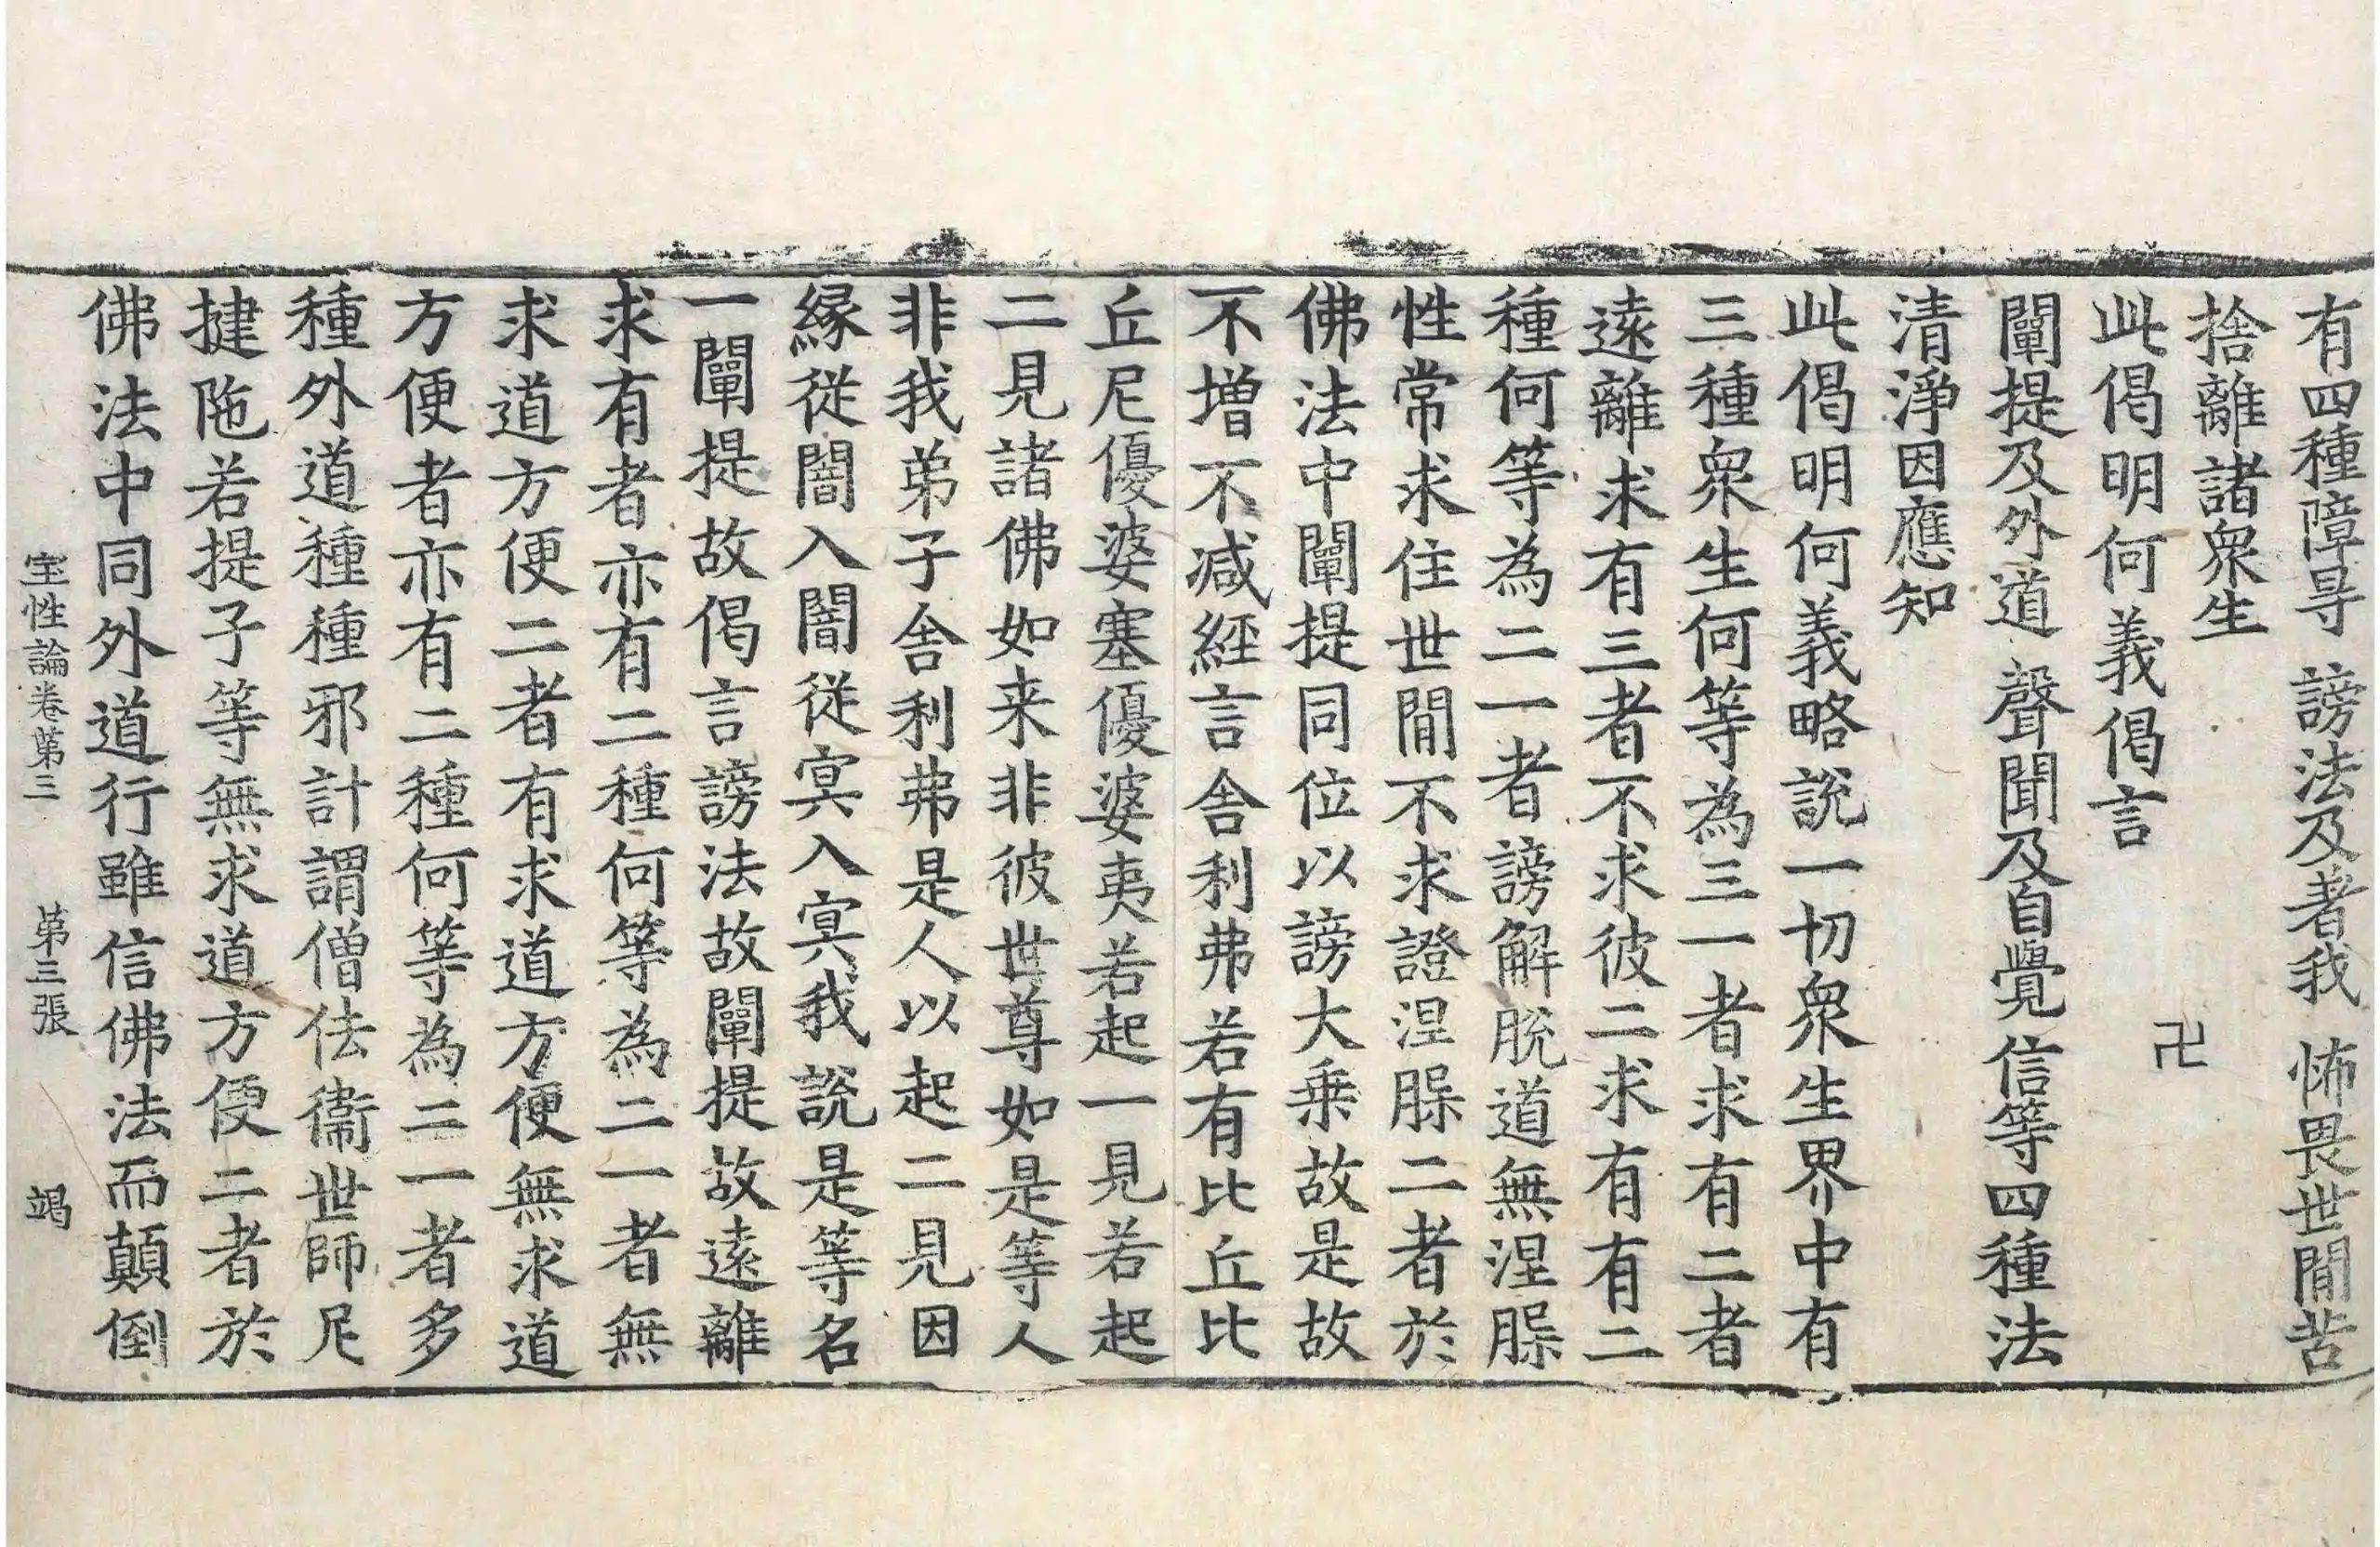 有四種障㝵 謗法及著我 怖畏世間苦
捨離諸衆生
此偈明何義偈言 卍
闡提及外道 聲聞及自覺 信等四種法
清淨因應知
此偈明何義略說一切衆生界中有
三種衆生何等為三一者求有二者
遠離求有三者不求彼二求有有二
種何等為二一者謗解脫道無涅槃
性常求住世間不求證涅槃二者於
佛法中闡提同位以謗大乗故是故
不增不减經言舍利弗若有比丘比
丘尼優婆塞優婆夷若起一見若起
二見諸佛如来非彼世尊如是等人
非我弟子舍利弗是人以起二見因
緣從闇入闇從冥入冥我說是等名
一闡提故偈言謗法故闡提故遠離
求有者亦有二種何等為二一者無
求道方便二者有求道方便無求道
方便者亦有二種何等為二一者多
種外道種種邪計謂僧佉衞世師尼
揵陁若提子等無求道方便二者於
佛法中同外道行雖信佛法而顛倒
宝性論卷第三 第三張 竭